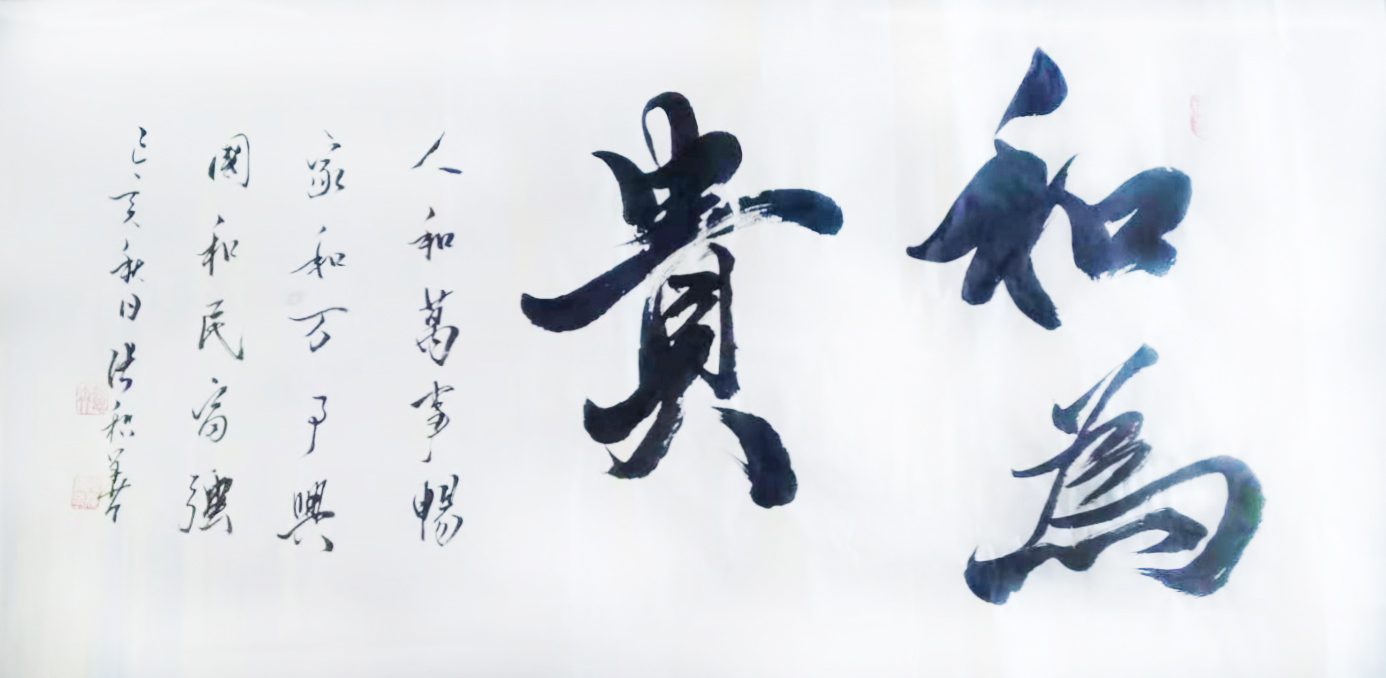 和為
貴
人和萬事暢
家和万事興
國和民富強
己亥秋日张